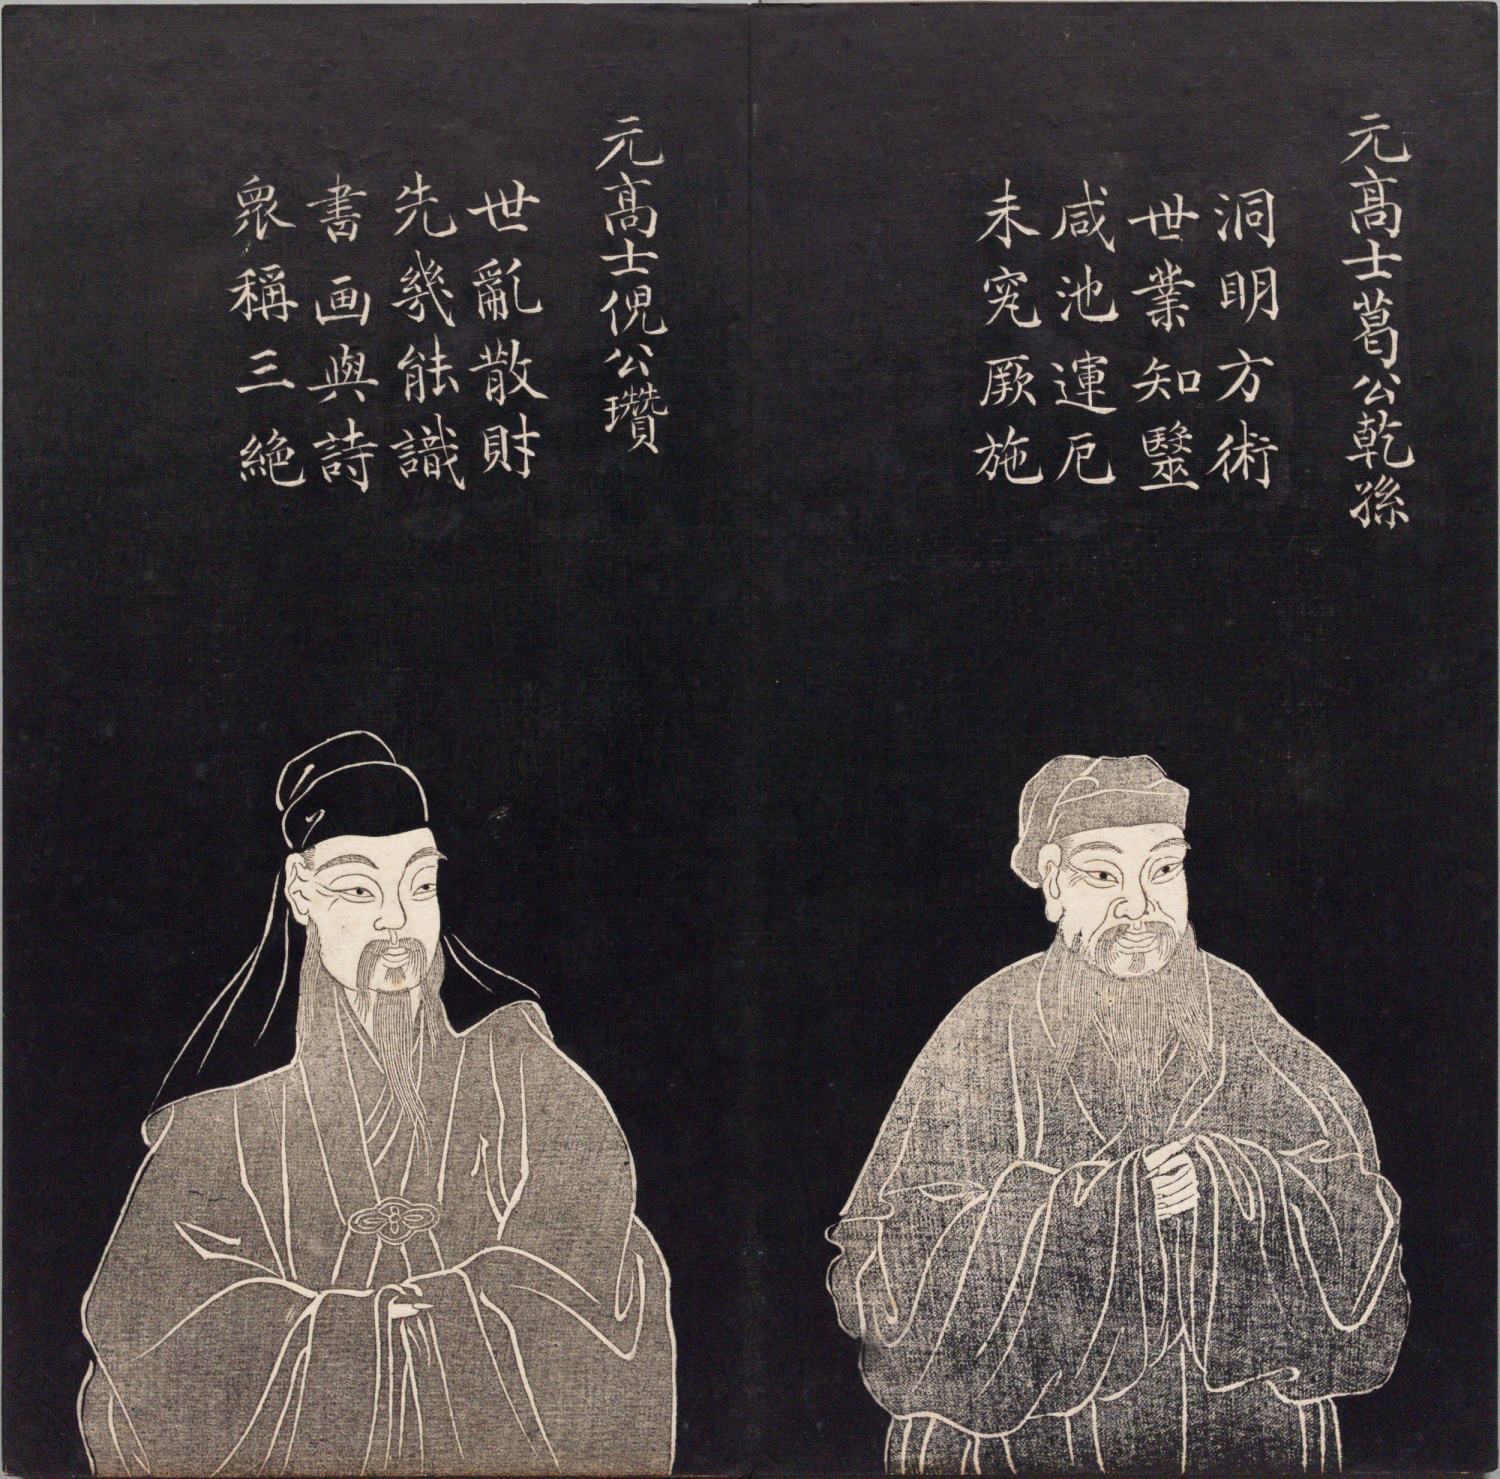 元髙士葛公乾孫
洞明方術
世業知毉
咸池運厄
未究厥施
元髙士倪公瓚
世亂散財
先幾能識
書画與詩
衆稱三絶